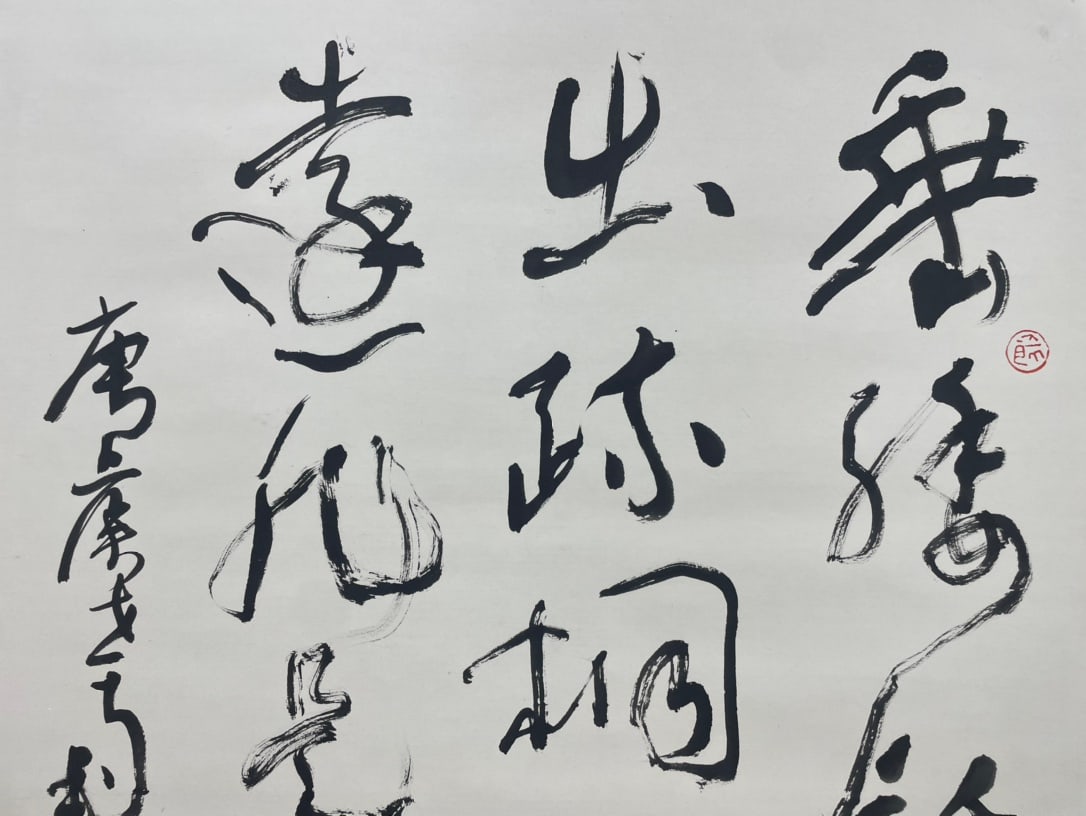 垂緌飲
出疎桐
遠非是
唐虞世南